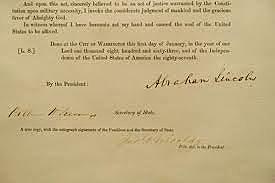 And upon this act, sincerely believed to be an act of justice warranted by the Consti-
tution upon military necessity, I invoke the considerate judgment of mankind and the gracious
favor of Almighty God.
In witness whereof I have hereunto set my hand and caused the seal of the United
States to be affixed.
Done at the CITY OF WASHINGTON this first day of January, in the year of our
[L. S.] Lord one thousand eight hundred and sixty-three, and of the Indepen-
dence of the United States of America the eighty-seventh.
By the President:
Abraham Lincoln
Secretary of State.
A true copy, with the autograph signatures of the President and the Secretary of State.
Priv. Sec. to the President.